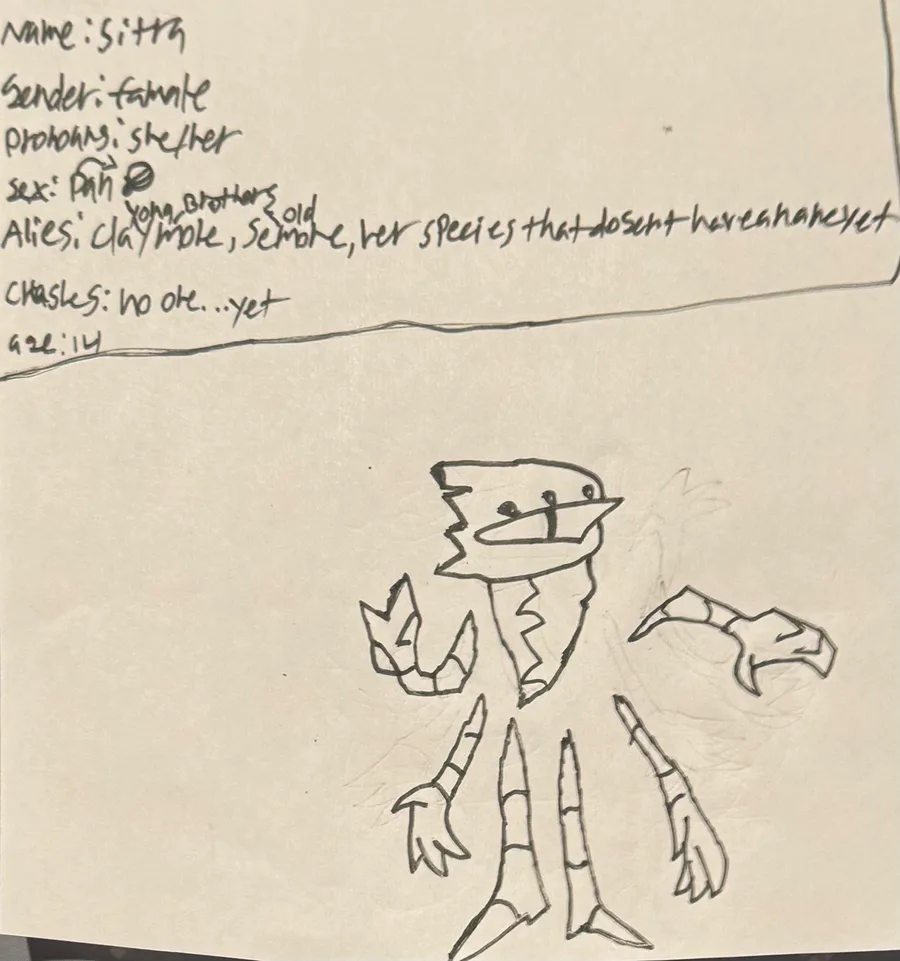 Name: Sitra
Gender: famale
pronouns: she/her
sex: Pan
Yong Brothers old
Alies: claymore, Semore, her species that dosent have a name yet
Crushes: no one...yet
age: 14